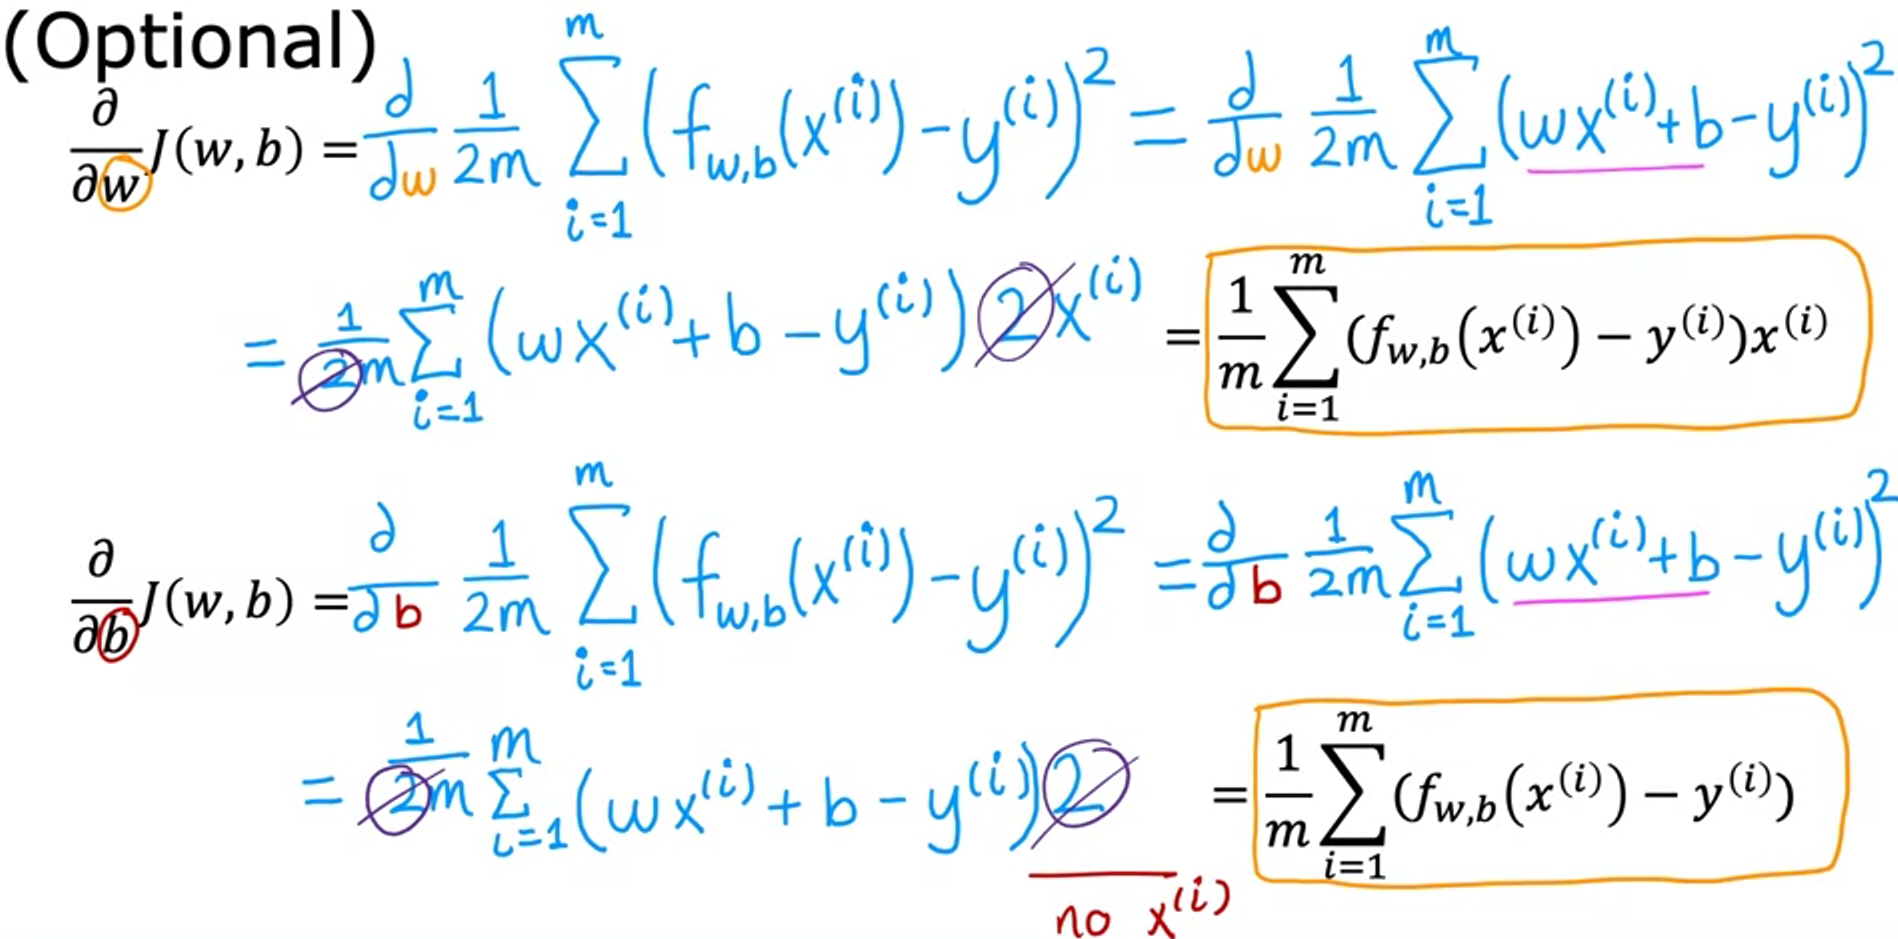 (Optional)
∂/∂w J(w, b) = d/dw 1/2m Σ_{i=1}^{m} (f_{w,b}(x^{(i)}) - y^{(i)})^2 = d/dw 1/2m Σ_{i=1}^{m} (wx^{(i)} + b - y^{(i)})^2
= 1/2m Σ_{i=1}^{m} (wx^{(i)} + b - y^{(i)}) 2 x^{(i)} = 1/m Σ_{i=1}^{m} (f_{w,b}(x^{(i)}) − y^{(i)})x^{(i)}
∂/∂b J(w, b) = ∂/∂b 1/2m Σ_{i=1}^{m} (f_{w,b}(x^{(i)}) - y^{(i)})^2 = ∂/∂b 1/2m Σ_{i=1}^{m} (wx^{(i)} + b - y^{(i)})^2
= 1/2m Σ_{i=1}^{m} (wx^{(i)} + b - y^{(i)}) 2 = 1/m Σ_{i=1}^{m} (f_{w,b}(x^{(i)}) − y^{(i)})
no x^{(i)}